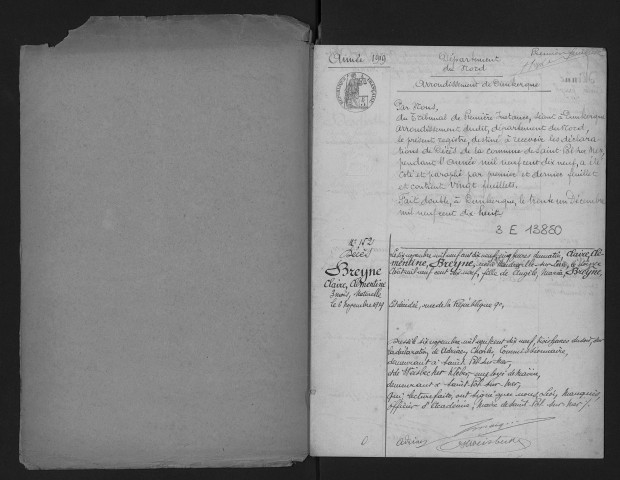 Année 1919
Département
du Nord
Arrondissement de Dunkerque
Par Nous,
du Tribunal de Première Instance, séant à Dunkerque
arrondissement dudit, département du Nord,
le présent registre, destiné à recevoir les déclara
tions de Décès de la commune de Saint Pol sur Mer,
pendant l'Année mil neuf cent dix neuf, a été
coté et paraphé par premier et dernier feuillet
et contient Vingt feuillets.
Fait double, à Dunkerque, le trente un Décembre
mil neuf cent dix huit
3 E 13880
N° 152
Décès
Breyne
Claire, Clémentine
3 mois, Naturelle
le 6 Novembre 1919
Le six novembre mil neuf cent dix neuf, cinq heures du matin, Claire, Clé-
mentine, Breyne, née à
mil neuf cent dix neuf, fille de Angèle, Maria, Breyne,
décédée, rue de la République 90,
Dressé le six novembre mil neuf cent dix neuf, trois heures du soir, sur
la déclaration de Adriaen Charles, Commissionnaire,
demeurant à Saint Pol sur Mer
et de Weisbecker Kléber, employé de Mairie,
demeurant à Saint Pol sur Mer,
Qui, lecture faite, ont signé avec nous Léon Mauquis,
Officier d'Académie, Maire de Saint Pol sur Mer.